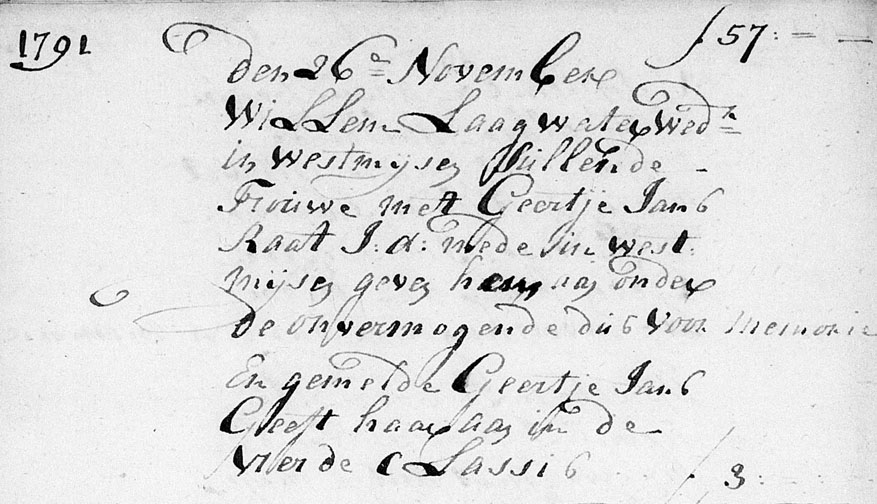 1791 ƒ 57: = =
den 26e November
Willem Laagwater Wedr
in Westmijsen Sullende
Trouwe mett Geertje Jans
Raat J: d: mede in west
mijsen geven hem aan onder
de onvermogende dus voor memorie
En gemelde Geertje Jans
Geeft haar aan in de
Vierde Classis ƒ 3: